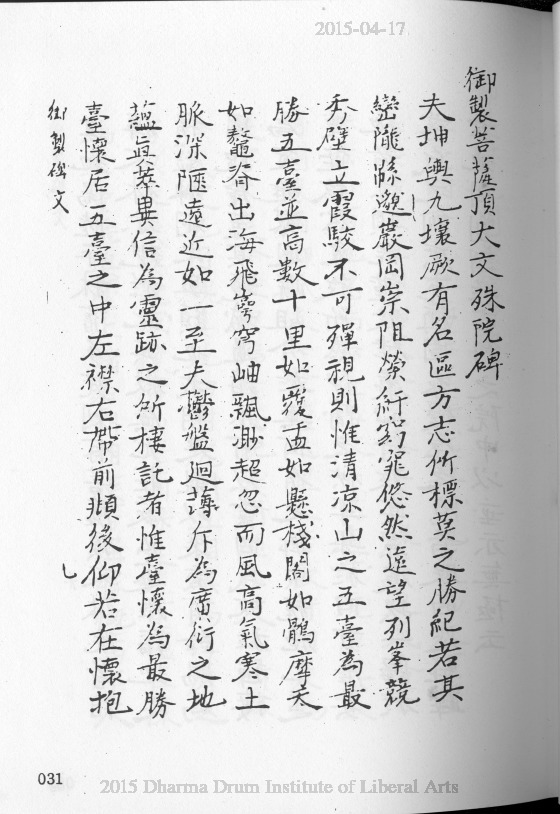 2015-04-17
御製菩薩頂大文殊院碑
夫坤輿九壤厥有名區方志所標莫之勝紀若其
巒隴緜邈巖岡崇阻縈紆窈窕悠然遠望列峯競
秀壁立霞駮不可殫視則惟清涼山之五臺為最
勝五臺並高數十里如覆盂如懸棧閣如鵰摩天
如鼇脊出海飛穹岫飄渺超忽而風高氣寒土
脈深陿遠近如一至夫鬱盤迴薄斥為廣衍之地
蘊真萃異信為靈跡之所棲託者惟臺懷為最勝
臺懷居五臺之中左襟右帶前頫後仰若在懷抱
御製碑文
031
2015 Dharma Drum Institute of Liberal Arts